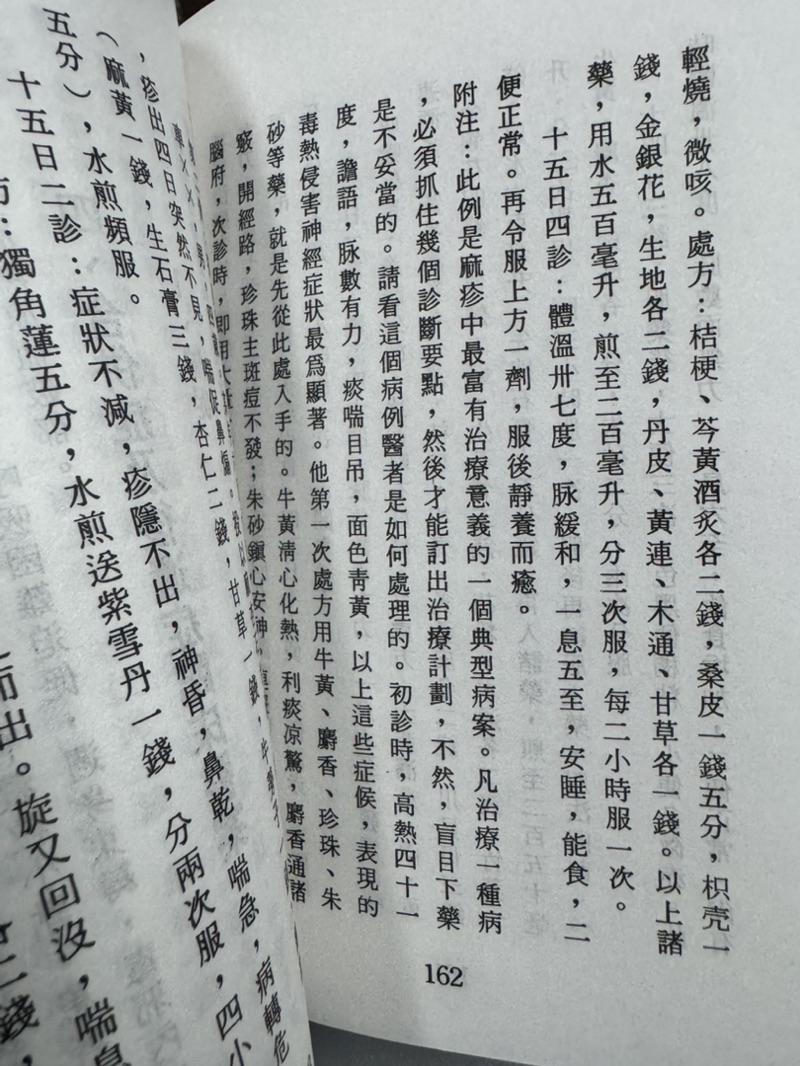 輕燒，微咳。處方：桔梗、芩黃酒炙各二錢，桑皮一錢五分，枳壳一
錢，金銀花，生地各二錢，丹皮、黃連、木通、甘草各一錢。以上諸
藥，用水五百毫升，煎至二百毫升，分三次服，每二小時服一次。
十五日四診：體溫卅七度，脉緩和，一息五至，安睡，能食，二
便正常。再令服上方一劑，服後靜養而癒。
附注：此例是麻疹中最富有治療意義的一個典型病案。凡治療一種病
，必須抓住幾個診斷要點，然後才能訂出治療計劃，不然，盲目下藥
是不妥當的。請看這個病例醫者是如何處理的。初診時，高熱四十一
度，譫語，脉數有力，痰喘目吊，面色靑黃，以上這些症候，表現的
毒熱侵害神經症狀最爲顯著。他第一次處方用牛黃、麝香、珍珠、朱
砂等藥，就是先從此處入手的。牛黃淸心化熱，利痰涼驚，麝香通諸
竅，開經路，珍珠主斑痘不發；朱砂鎭心安神
腦府，次診時，即用大
，疹出四日突然不見，喘促鼻煽。
（麻黃一錢，生石膏三錢，杏仁二錢，甘草一錢
五分），水煎頻服。
十五日二診：症狀不減，疹隱不出，神昏，鼻乾，喘急，病轉危
：獨角蓮五分，水煎送紫雪丹一錢，分兩次服，四小
而出。旋又回沒，喘息
二錢，
162